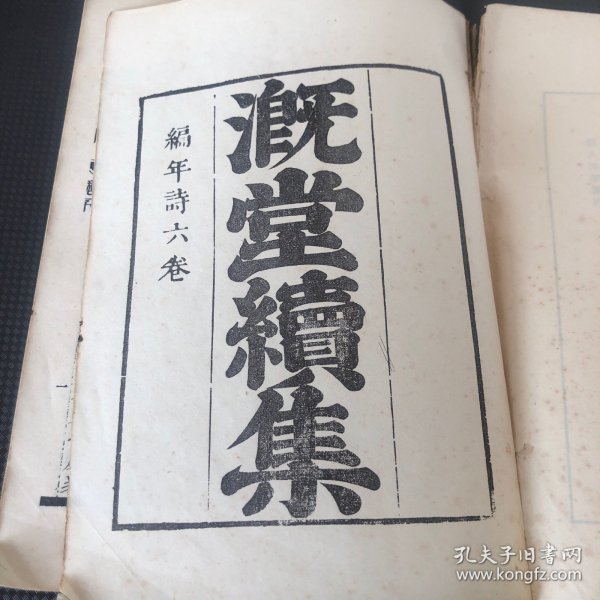 溉堂續集
編年詩六卷
孔夫子旧书网
www.kongfz.com